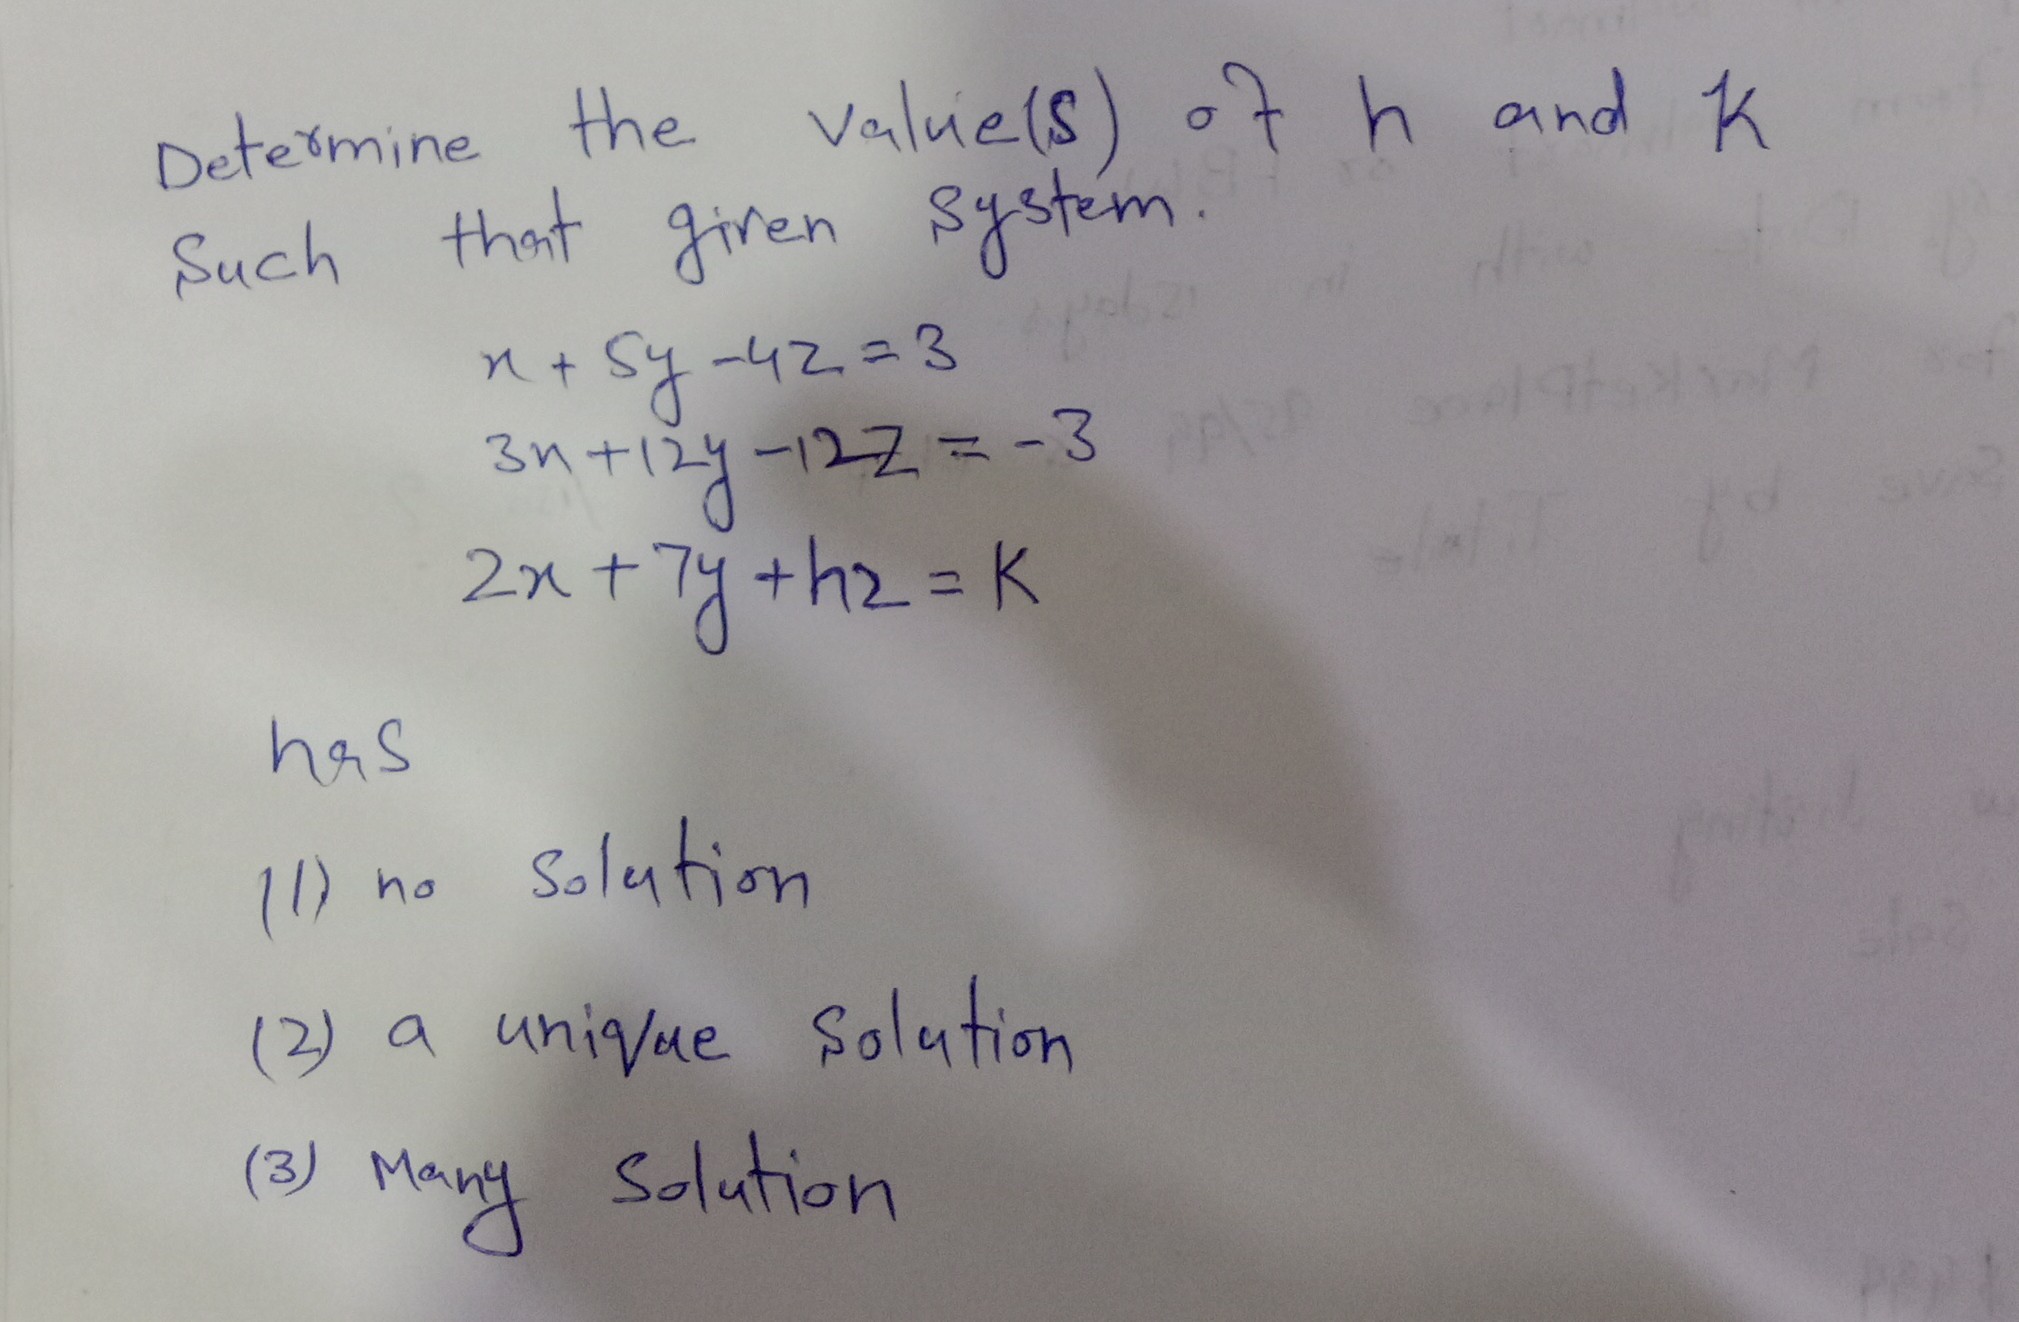 Determine the value(s) of h and K
Such that given system.
x + 5y - 4z = 3
3x + 12y - 12z = -3
2x + 7y + hz = K
has
(1) no solution
(2) a unique solution
(3) Many solution